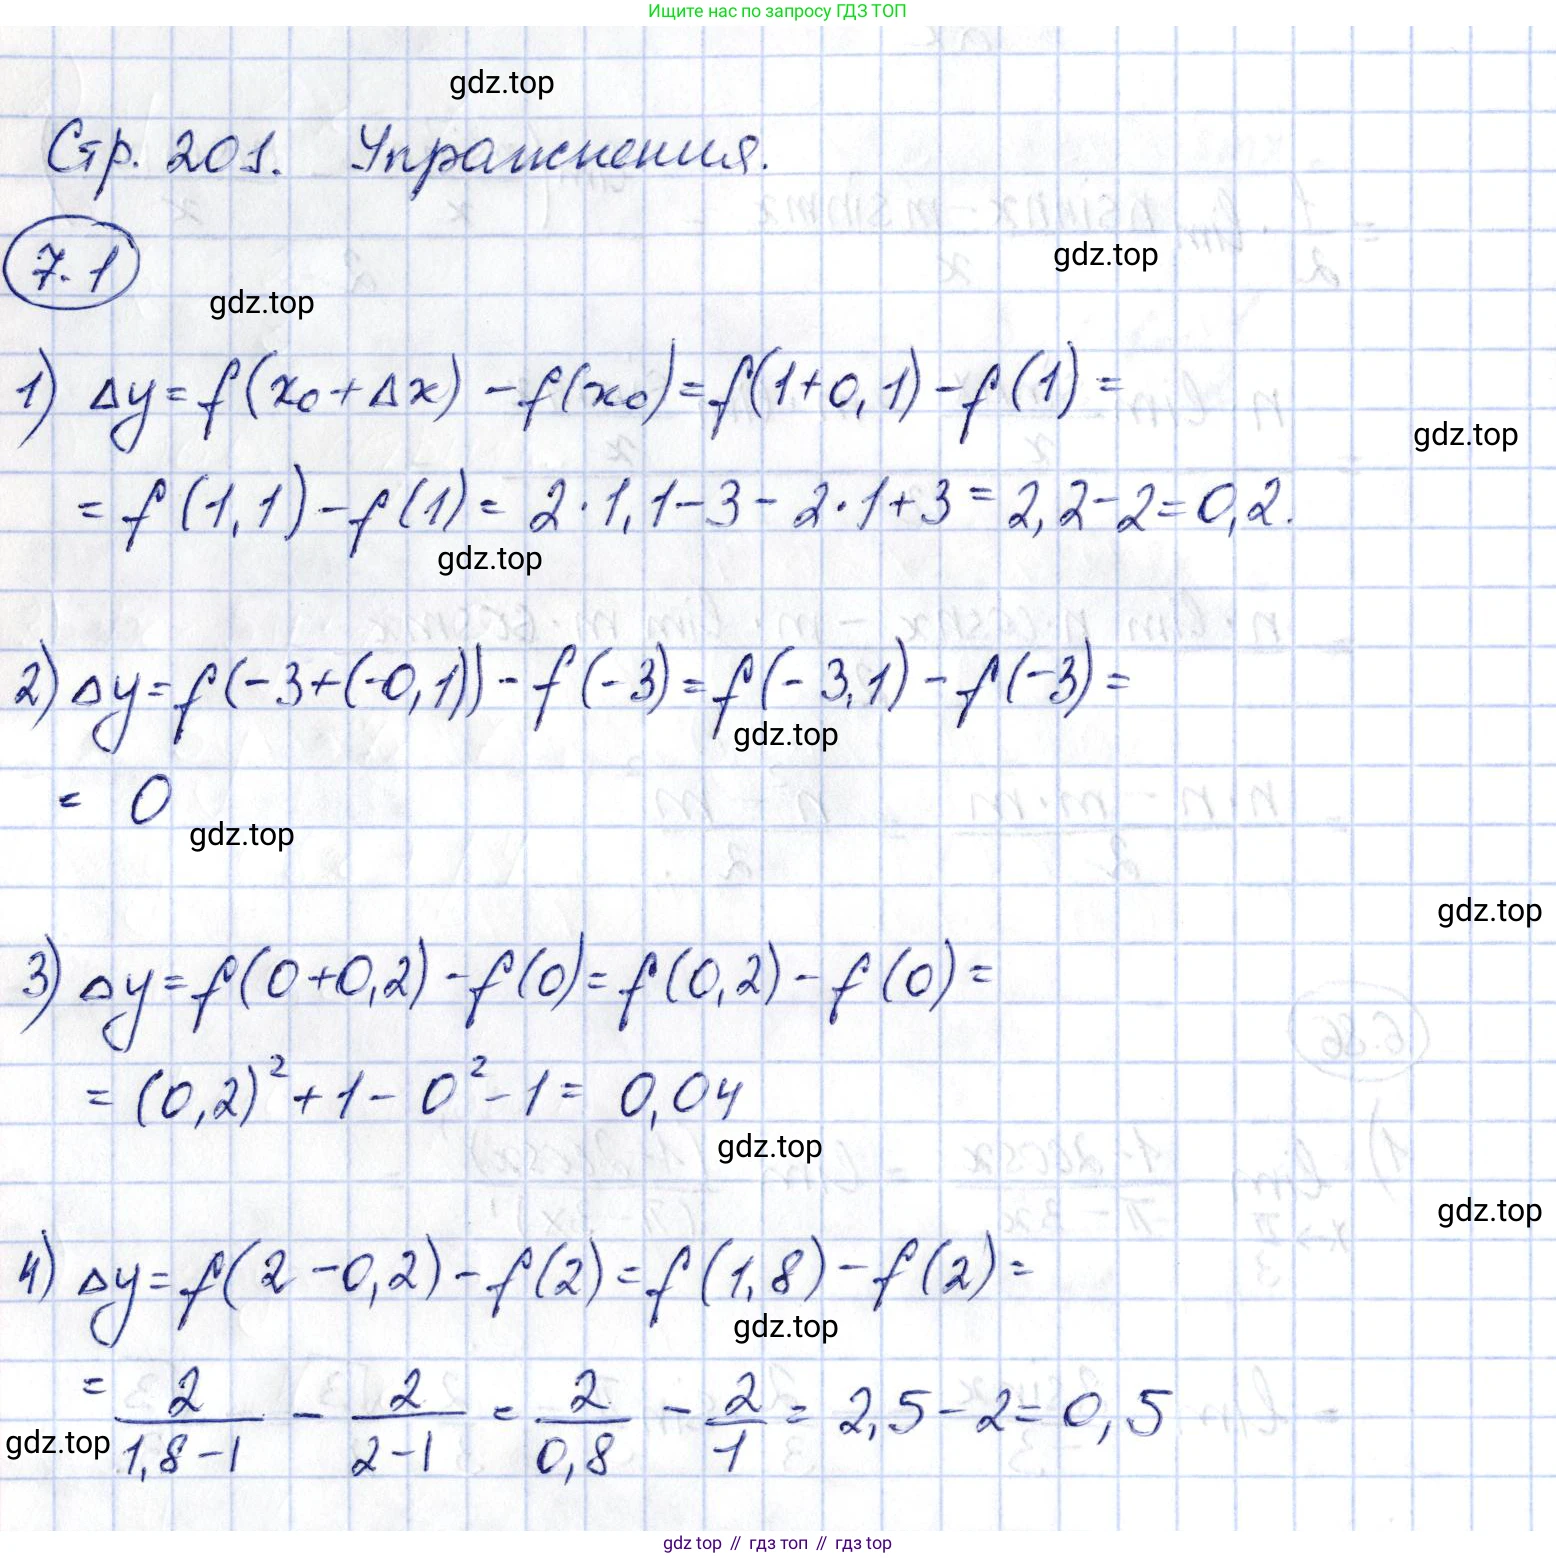 Ищите нас по запросу ГДЗ ТОП
gdz.top
Стр. 201. Упражнения.
7.1
gdz.top
gdz.top
1) Δy = f(x₀ + Δx) - f(x₀) = f(1+0,1) - f(1) =
gdz.top
= f(1,1) - f(1) = 2·1,1 - 3 - 2·1 + 3 = 2,2 - 2 = 0,2.
gdz.top
2) Δy = f(-3+(-0,1)) - f(-3) = f(-3,1) - f(-3) =
gdz.top
= 0
gdz.top
gdz.top
3) Δy = f(0+0,2) - f(0) = f(0,2) - f(0) =
= (0,2)² + 1 - 0² - 1 = 0,04
gdz.top
gdz.top
4) Δy = f(2-0,2) - f(2) = f(1,8) - f(2) =
gdz.top
= 2/(1,8-1) - 2/(2-1) = 2/0,8 - 2/1 = 2,5 - 2 = 0,5
gdz.top
gdz.top // гдз топ // гдз top